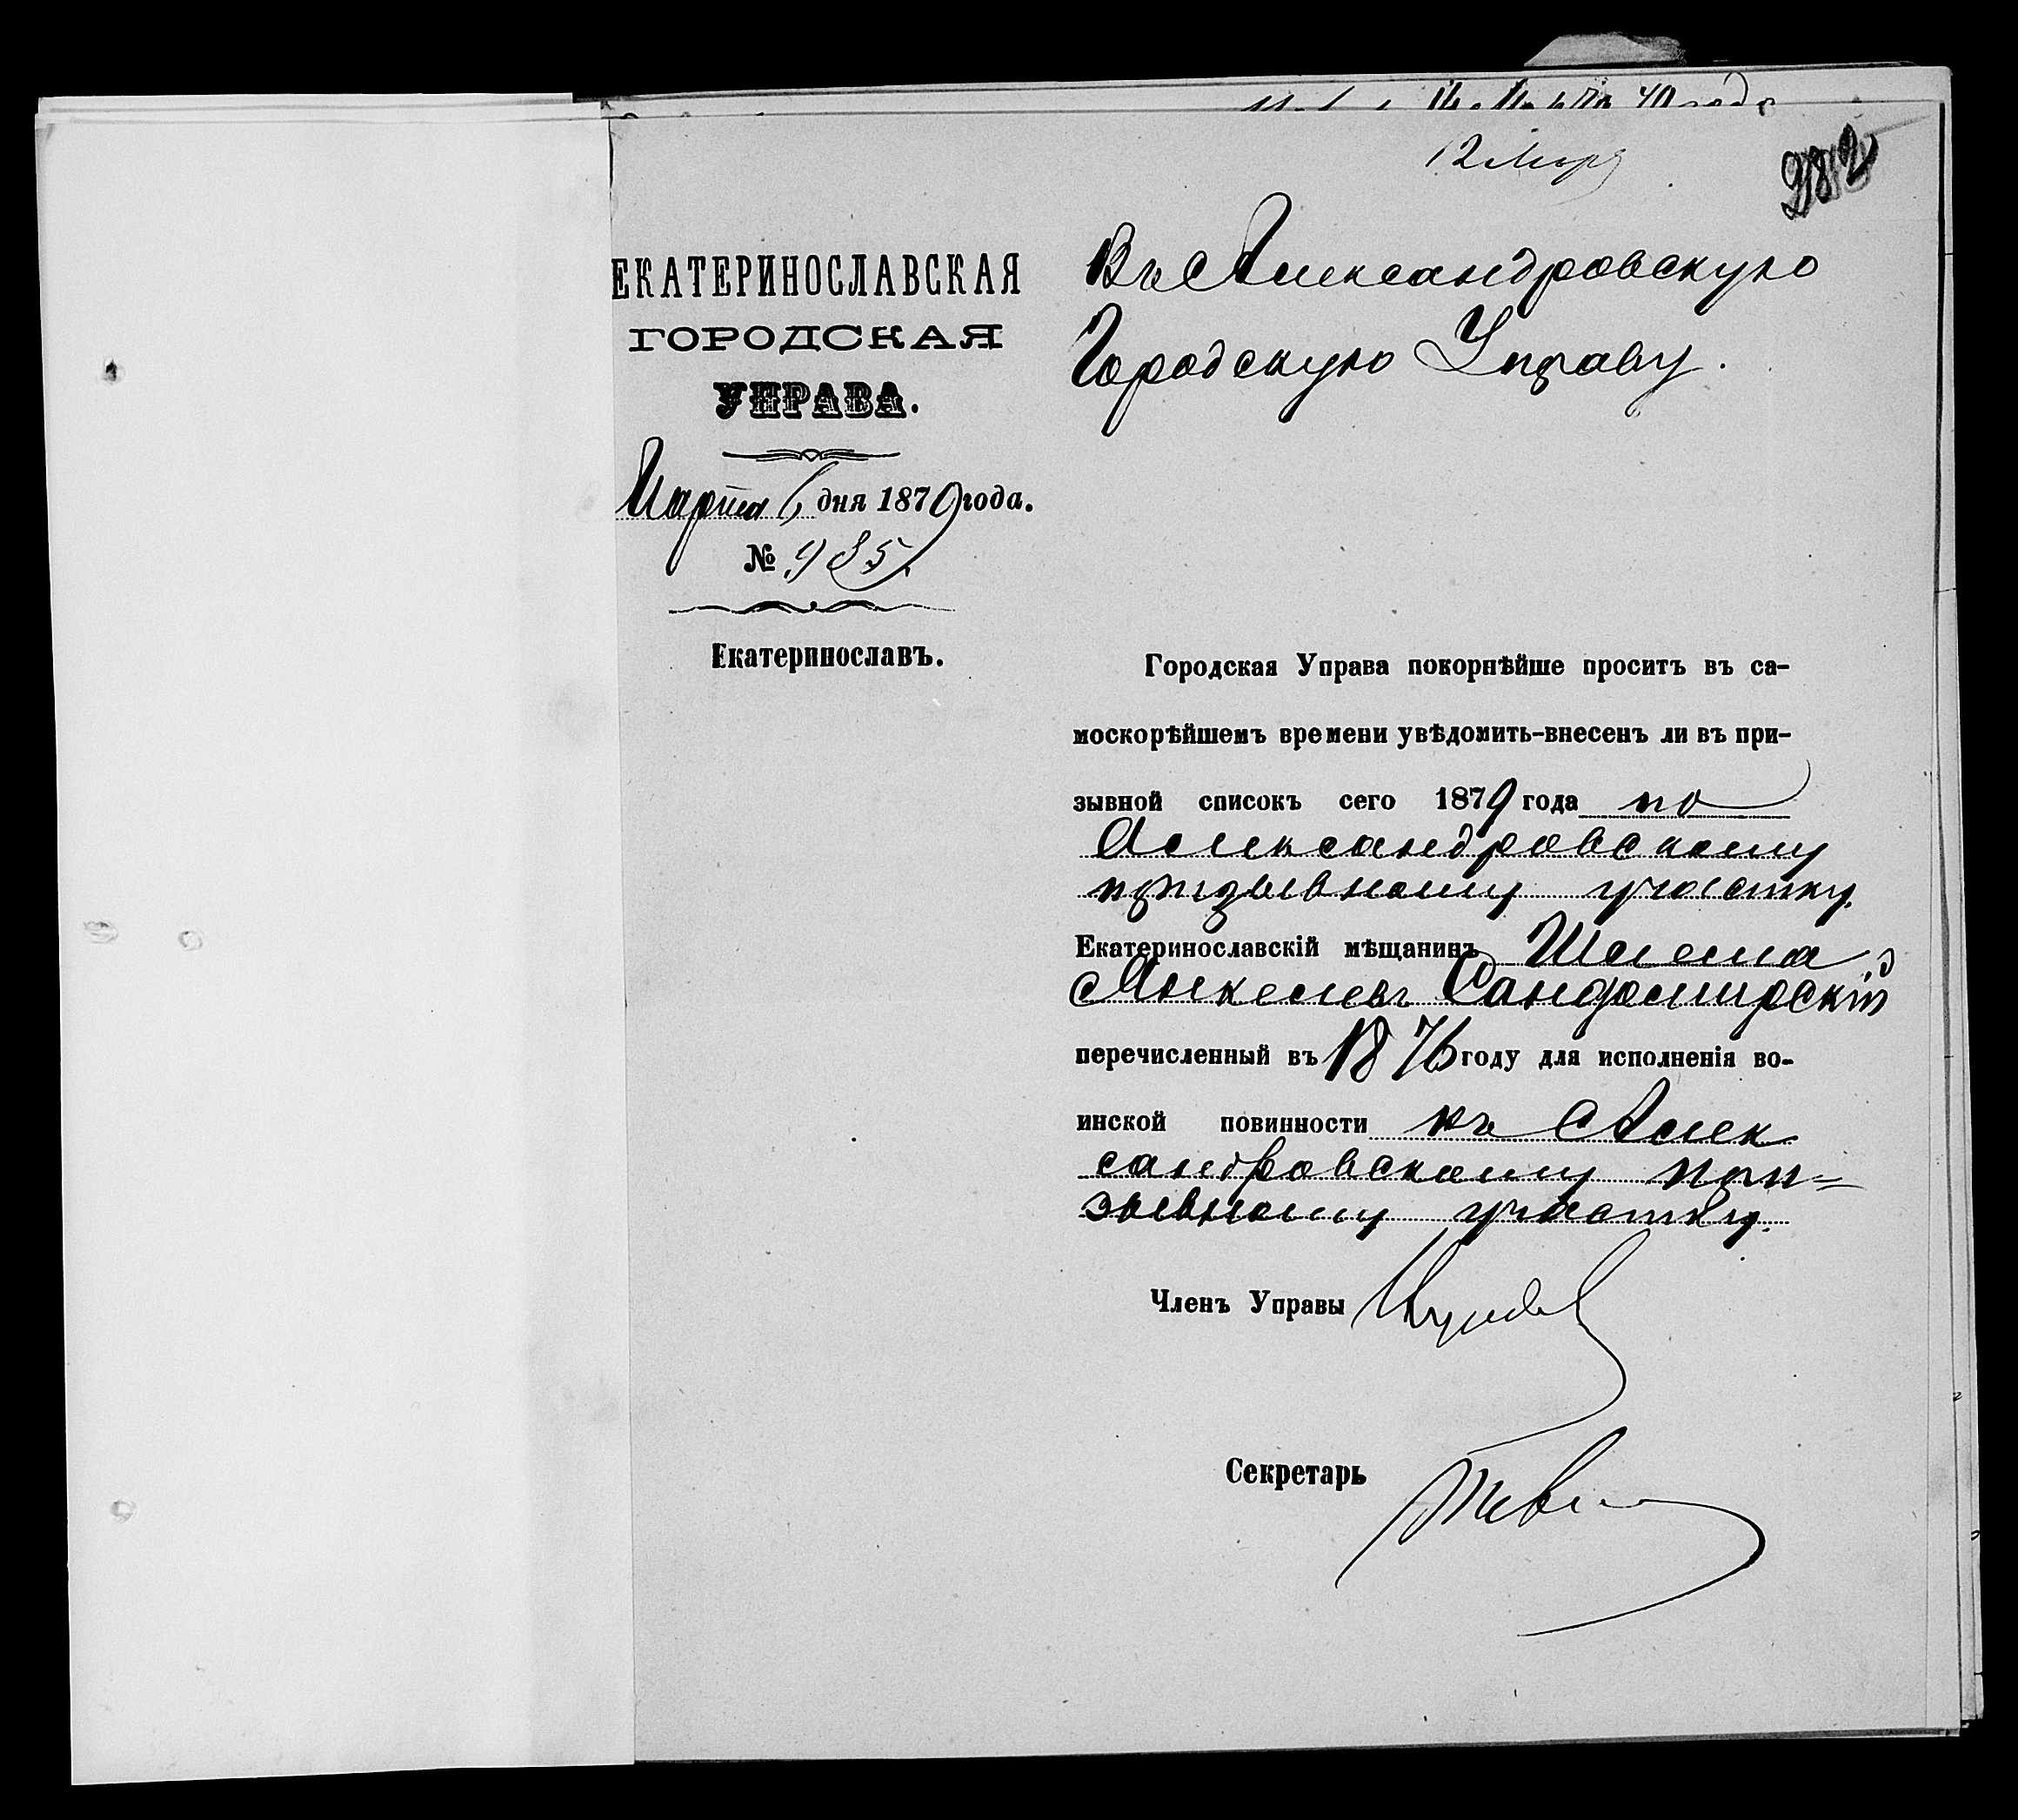 12 Мар
282
ЕКАТЕРИНОСЛАВСКАЯ
ГОРОДСКАЯ
УПРАВА.
Марта 6 дня 1879 года.
№ 985
Екатеринославъ.
Въ Александровскую
Городскую Управу.
Городская Управа покорнѣйше проситъ въ са-
москорѣйшемъ времени увѣдомить-внесенъ ли въ при-
зывной списокъ сего 1879 года по
Александровскому
призывному участку
Екатеринославскій мѣщанинъ Шлема
Янкелевъ Сандомирскій
перечисленный въ 1876 году для исполненія во-
инской повинности къ Алек
сандровскому при=
зывному участку.
Членъ Управы
Секретарь